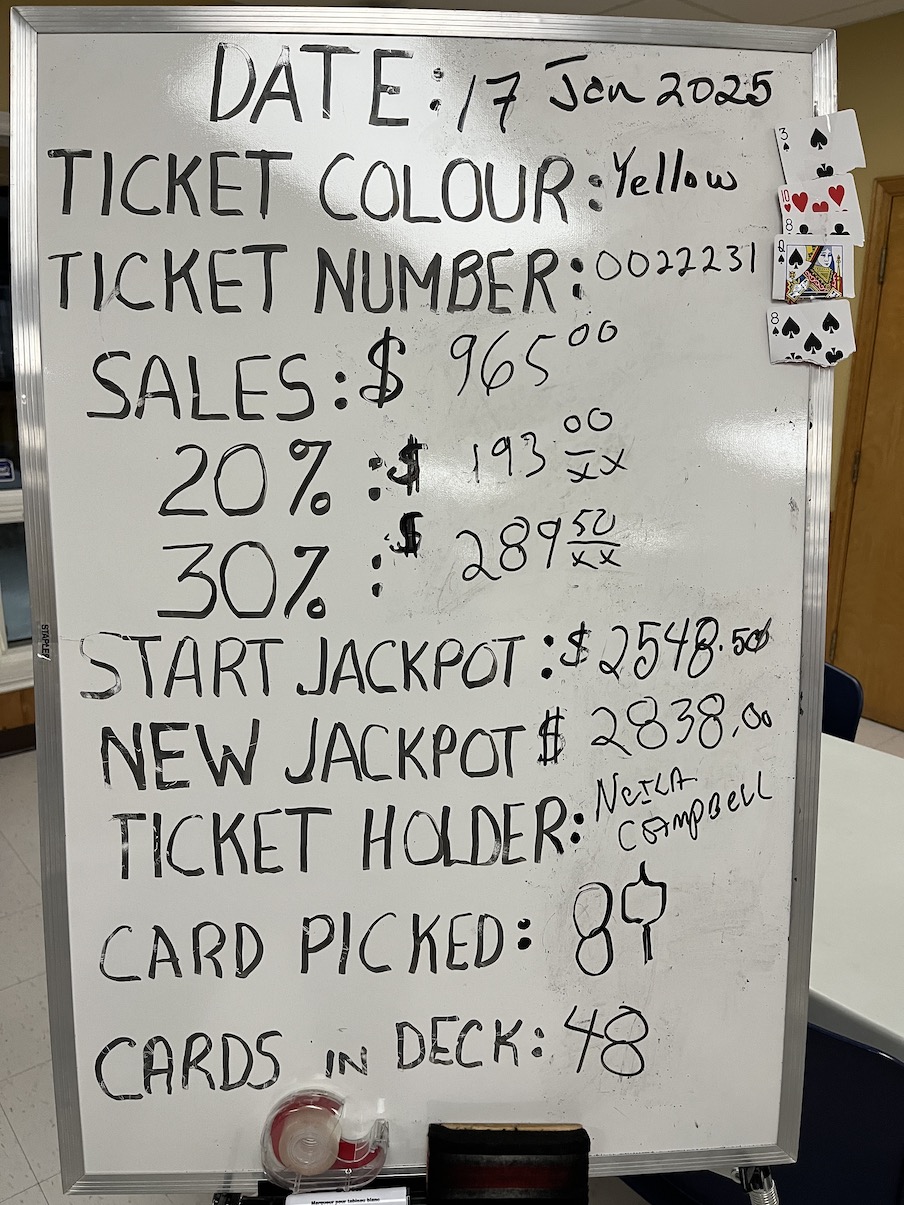 DATE: 17 Jan 2025
TICKET COLOUR: Yellow
TICKET NUMBER: 0022231
SALES: $ 965 00
20% : $ 193 00/xx
30% : $ 289 50/xx
START JACKPOT: $ 2548.50
NEW JACKPOT $ 2838.00
TICKET HOLDER: NEILA
CAMPBELL
CARD PICKED: 8♠
CARDS IN DECK: 48
3
10
8
Q
8
STAPLES
Marqueur pour tableau blanc